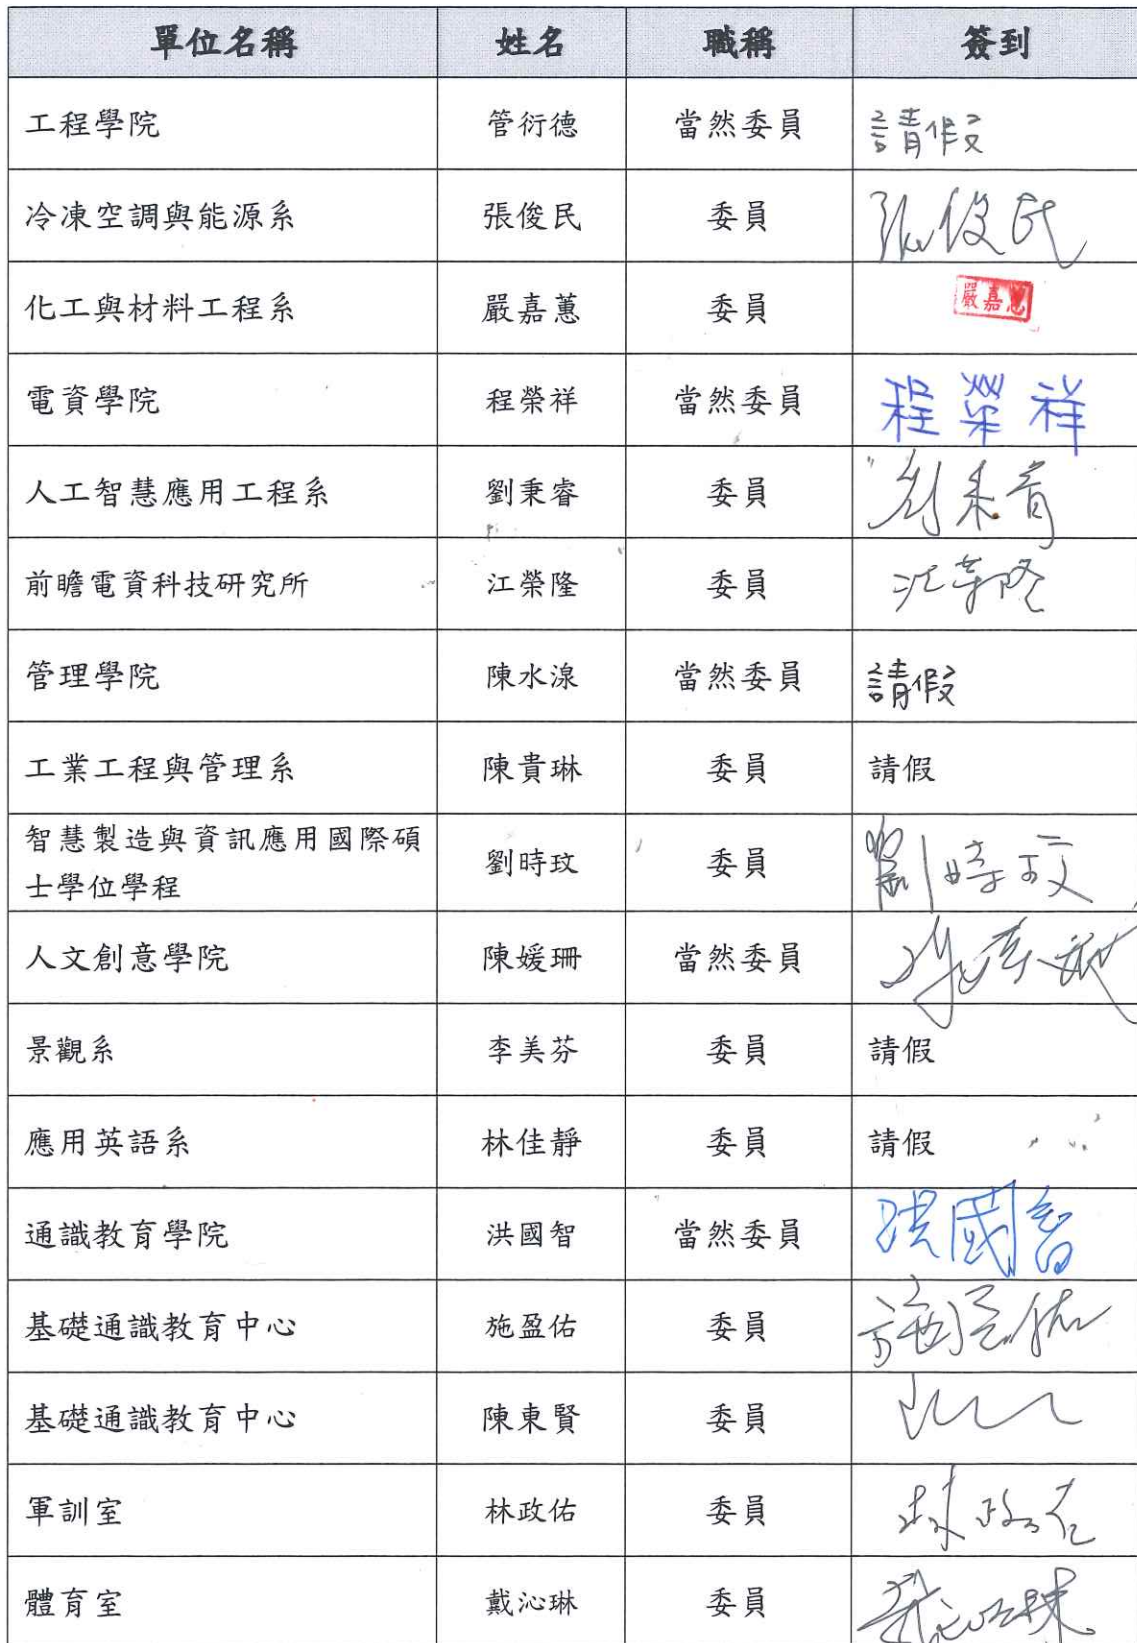 單位名稱 姓名 職稱 簽到
工程學院 管衍德 當然委員 請假
冷凍空調與能源系 張俊民 委員 張俊民
化工與材料工程系 嚴嘉蕙 委員 嚴嘉蕙
電資學院 程榮祥 當然委員 程榮祥
人工智慧應用工程系 劉秉睿 委員 劉秉睿
前瞻電資科技研究所 江榮隆 委員 江榮隆
管理學院 陳水湶 當然委員 請假
工業工程與管理系 陳貴琳 委員 請假
智慧製造與資訊應用國際碩
士學位學程 劉時玟 委員 劉時玟
人文創意學院 陳媛珊 當然委員
景觀系 李美芬 委員 請假
應用英語系 林佳靜 委員 請假
通識教育學院 洪國智 當然委員 洪國智
基礎通識教育中心 施盈佑 委員 施盈佑
基礎通識教育中心 陳東賢 委員
軍訓室 林政佑 委員 林政佑
體育室 戴沁琳 委員 戴沁琳